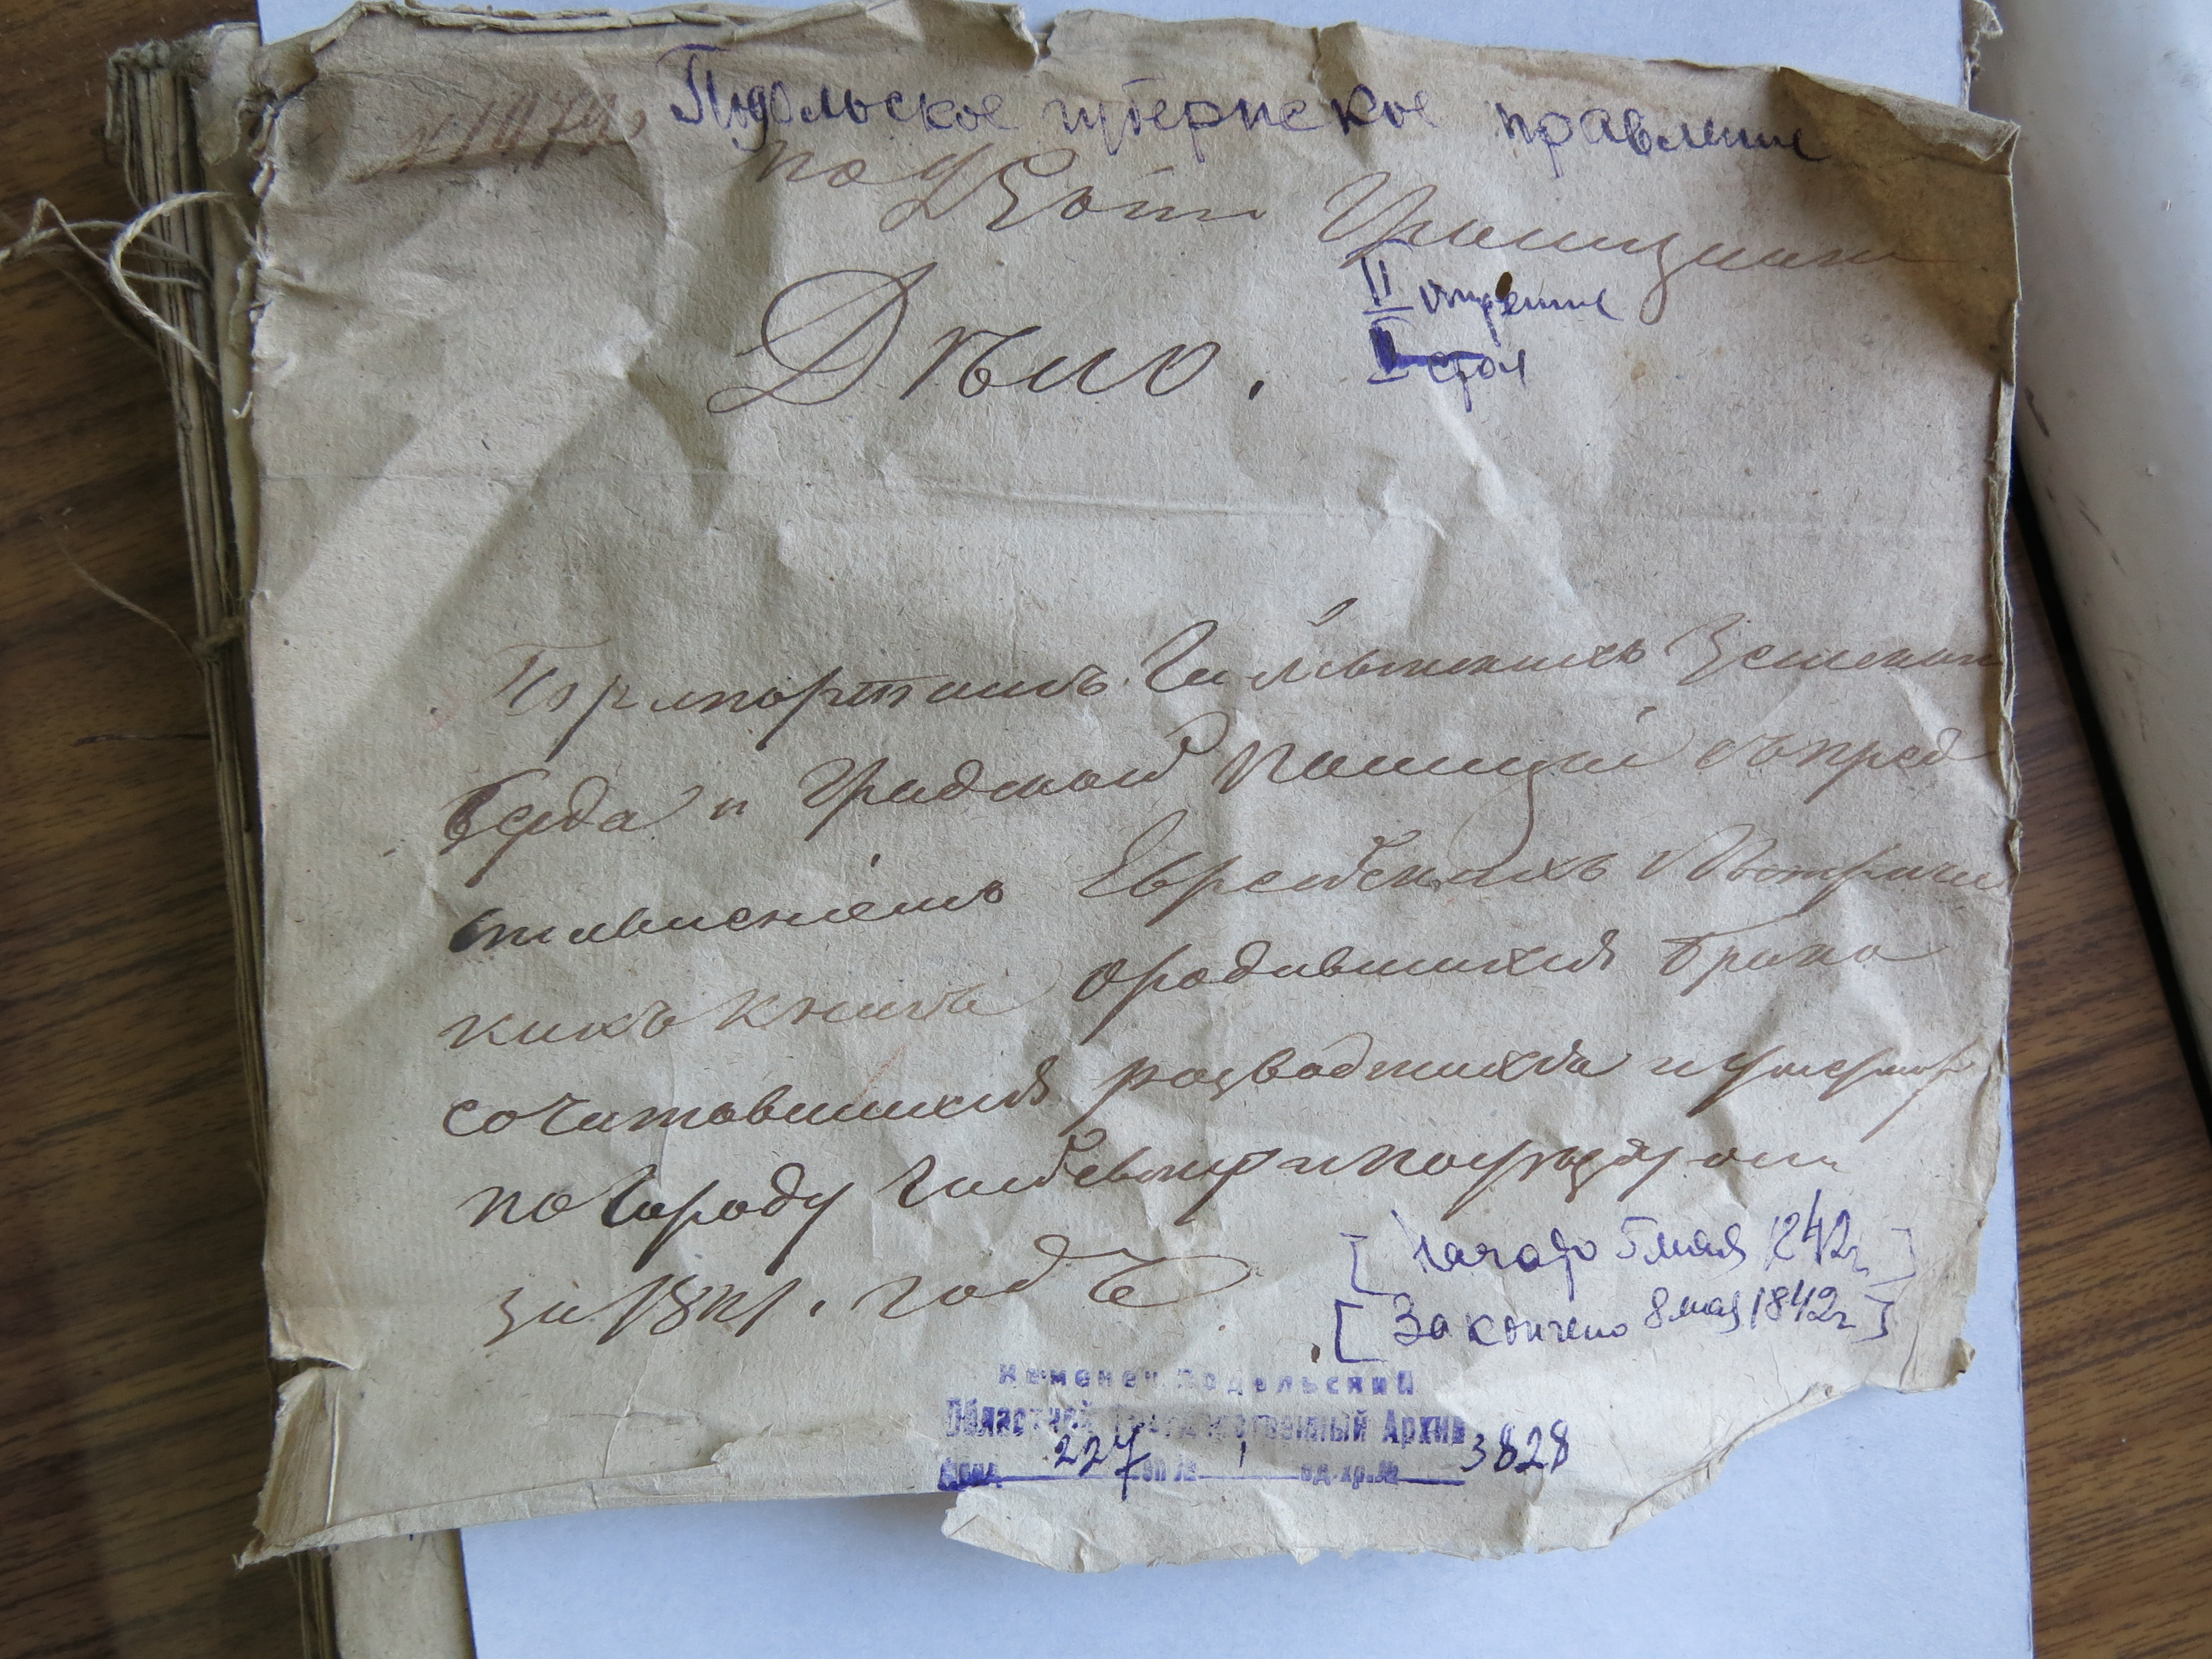 Подольское губернское правление
Дѣло.
II отделение
стол
По рапортамъ Гайсинскихъ Земскаго
Суда и Градской Полиціи съ пред
ставленіемъ Еврейскихъ Метричес
кихъ книгъ о родившихся Брако
сочитавшихся разводшихся и умерш
по Городу Гайсину и по уезду онаго
за 1841. годъ
[Начато 5 мая 1842г.]
[Закончено 8 мая 1842г]
Каменец-Подольский
Областной Государственный Архив
Фонд 227 оп № 1 ед. хр. № 3828